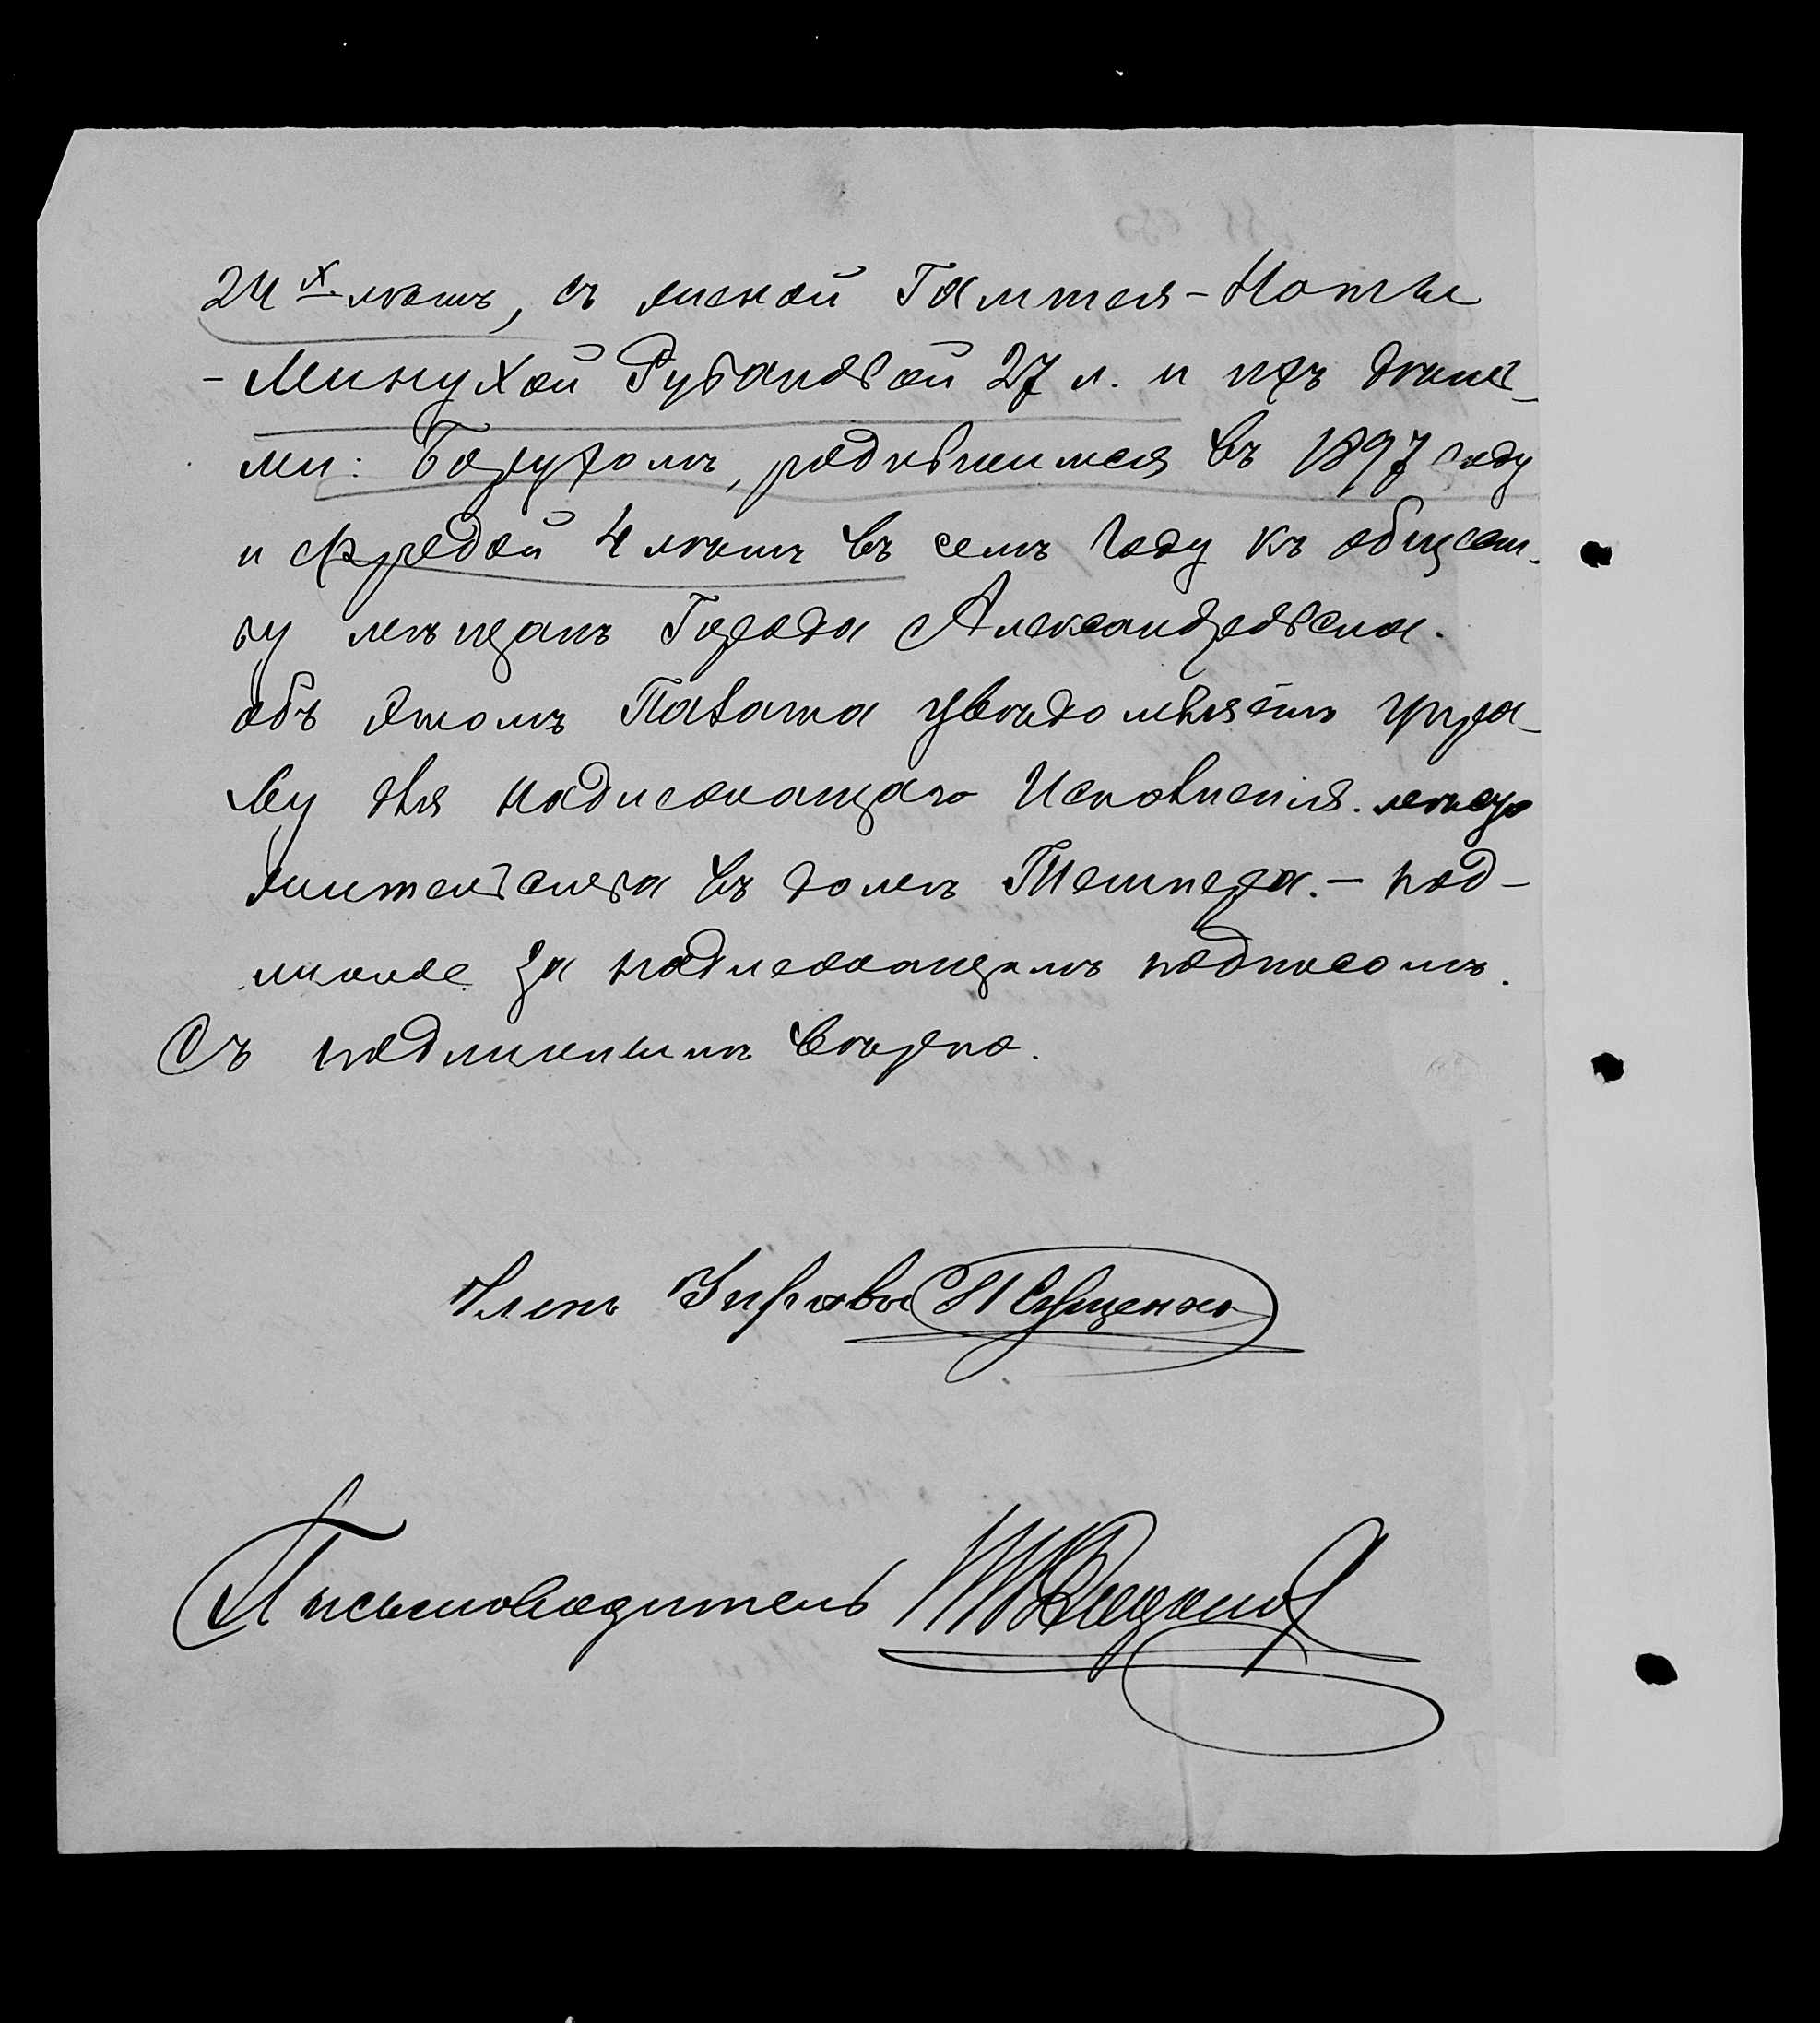 24х лѣтъ, съ женой Гамтея-Ноты
-Минухой Рубановой 27 л. и ихъ дѣть-
ми: Борухомъ, родившимся въ 1897 году
и Фредой 4 лѣтъ въ семъ году къ общест-
ву мѣщанъ Города Александровска.
объ этомъ Палата увѣдомляетъ упра-
ву для надлежащаго Исполненія. мѣсто
жительства въ домѣ Темпера. - под-
линное за надлежащимъ подписомъ.
Съ подлиннымъ вѣрно.
Членъ Управы Н Сущенко
Письмоводитель